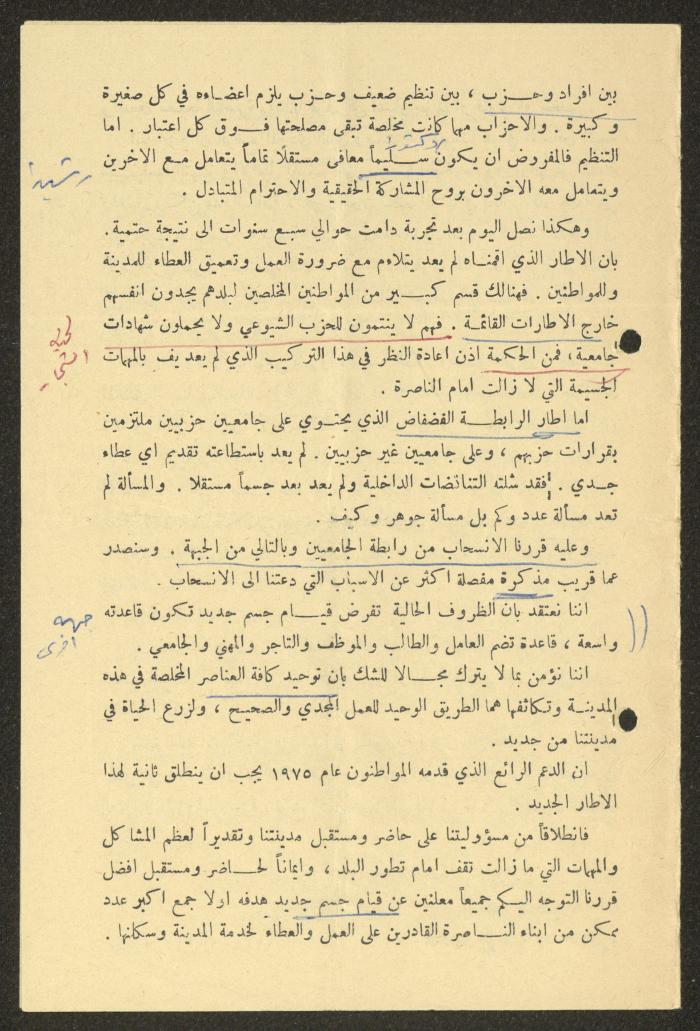 بين افراد وحـــزب ، بين تنظيم ضعيف وحزب يلزم اعضاءه في كل صغيرة
وكبيرة . والاحزاب مهما كانت مخلصة تبقى مصلحتها فوق كل اعتبار . اما
التنظيم فالمفروض ان يكون سـليماً معافى مستقلاً تماماً يتعامل مع الاخرين
ويتعامل معه الاخرون بروح المشاركة الحقيقية والاحترام المتبادل .
وهكذا نصل اليوم بعد تجربة دامت حوالي سبع سنوات الى نتيجة حتمية .
بان الاطار الذي اقمناه لم يعد يتلاءم مع ضرورة العمل وتعميق العطاء للمدينة
وللمواطنين . فهنالك قسم كبـــير من المواطنين المخلصين لبلدهم يجدون انفسهم
خارج الاطارات القائمة . فهم لا ينتمون للحزب الشيوعي ولا يحملون شهادات
جامعية ، فمن الحكمة اذن اعادة النظر في هذا التركيب الذي لم يعد يف بالمهمات
الجسيمة التي لا زالت امام الناصرة .
اما اطار الرابطـــة الفضفاض الذي يحتوي على جامعيين حزبيين ملتزمين
بقرارات حزبهم ، وعلى جامعيين غير حزبيين . لم يعد باستطاعته تقديم اي عطاء
جدي . فقد شلته التناقضات الداخلية ولم يعد بعد جسماً مستقلا . والمسألة لم
تعد مسألة عدد وكم بل مسألة جوهر وكيف .
وعليه قررنا الانسحاب من رابطة الجامعيين وبالتالي من الجبهة . وسنصدر
عما قريب مذكرة مفصلة اكثر عن الاسباب التي دعتنا الى الانسحاب .
اننا نعتقد بان الظروف الحالية تفرض قيـــام جسم جديد تكون قاعدته
واسعة ، قاعدة تضم العامل والطالب والموظف والتاجر والمهني والجامعي .
جبهه
اخرى
اننا نؤمن بما لا يترك مجـــالا للشك بان توحيد كافة العناصر المخلصة في هذه
المدينـــة وتكاثفها هما الطريق الوحيد للعمل المجدي والصحيـح ، ولزرع الحياة في
مدينتنا من جديد .
ان الدعم الرائع الذي قدمه المواطنون عام ١٩٧٥ يجب ان ينطلق ثانية لهذا
الاطار الجديد .
فانطلاقاً من مسؤوليتنا على حاضر ومستقبل مدينتنا وتقديراً لعظم المشاكل
والمهمات التي ما زالت تقف امام تطور البلد ، وايماناً لحـــاضر ومستقبل افضل
قررنا التوجه اليكم جميعاً معلنين عن قيام جسم جديد هدفه اولا جمع اكبر عدد
ممكن من ابناء النـــاصرة القادرين على العمل والعطاء لخدمة المدينة وسكانها .